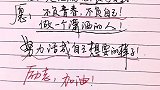 愿,
不负青春,不负自己!
做一个潇洒的人!
努力活成自己想要的样子!
加油!